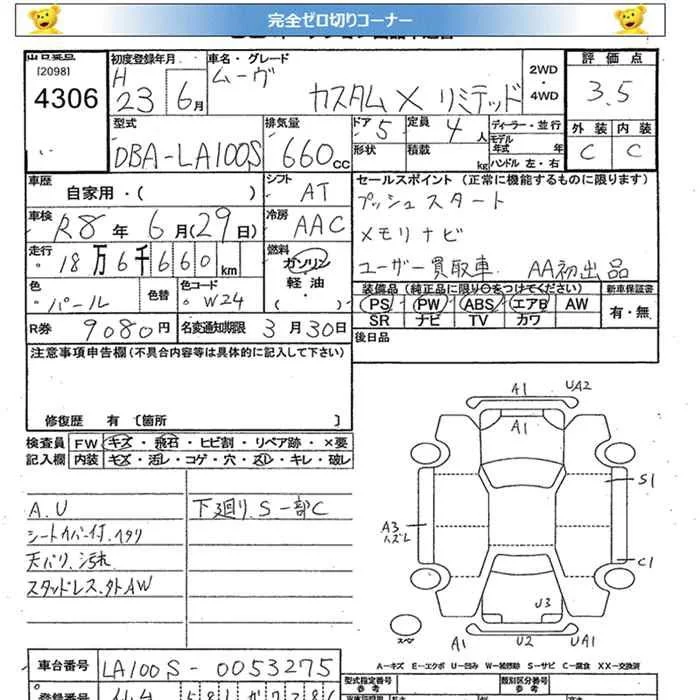 完全ゼロ切りコーナー
出品番号 初度登録年月 車名・グレード 2WD・4WD 評価点
[2098]
4306 H23 6月 ムーヴ カスタム X リミテッド 3.5
型式 排気量 ドア 定員 ディーラー・並行 外装 内装
DBA-LA100S 660cc 5 4人 モデル年式 年 C C
形状 積載 kg ハンドル 左・右
車歴 シフト セールスポイント (正常に機能するものに限ります)
自家用・( ) AT プッシュスタート
車検 R8年 6月(29日) 冷房 AAC メモリナビ
走行 18万6千660km 燃料 ガソリン・軽油・( ) ユーザー買取車. AA初出品
色 パール 色替 色コード W24 装備品 (純正品に限り○をつけてください) 新車保証書
PS PW ABS エアB AW 有・無
R券 9080円 名変通知期限 3月30日 SR ナビ TV カワ
注意事項申告欄(不具合内容等は具体的に記入して下さい) 後日品
修復歴 有 〔箇所 〕
検査員 FW キズ・飛石・ヒビ割・リペア跡・×要
記入欄 内装 キズ・汚レ・コゲ・穴・スレ・キレ・破レ
A1 UA2
A1
S1
A3
ハズレ
C1
U3
A1 U2 UA1
A.U 下廻り.S一部C
シートカバー付.ヘタリ
天バリ.汚れ
スタッドレス.外AW
A-キズ E-エクボ U-凹み W-補修跡 S-サビ C-腐食 XX-交換済
車台番号 LA100S-0053275
型式指定番号 類別区分番号
参考 参考
登録番号